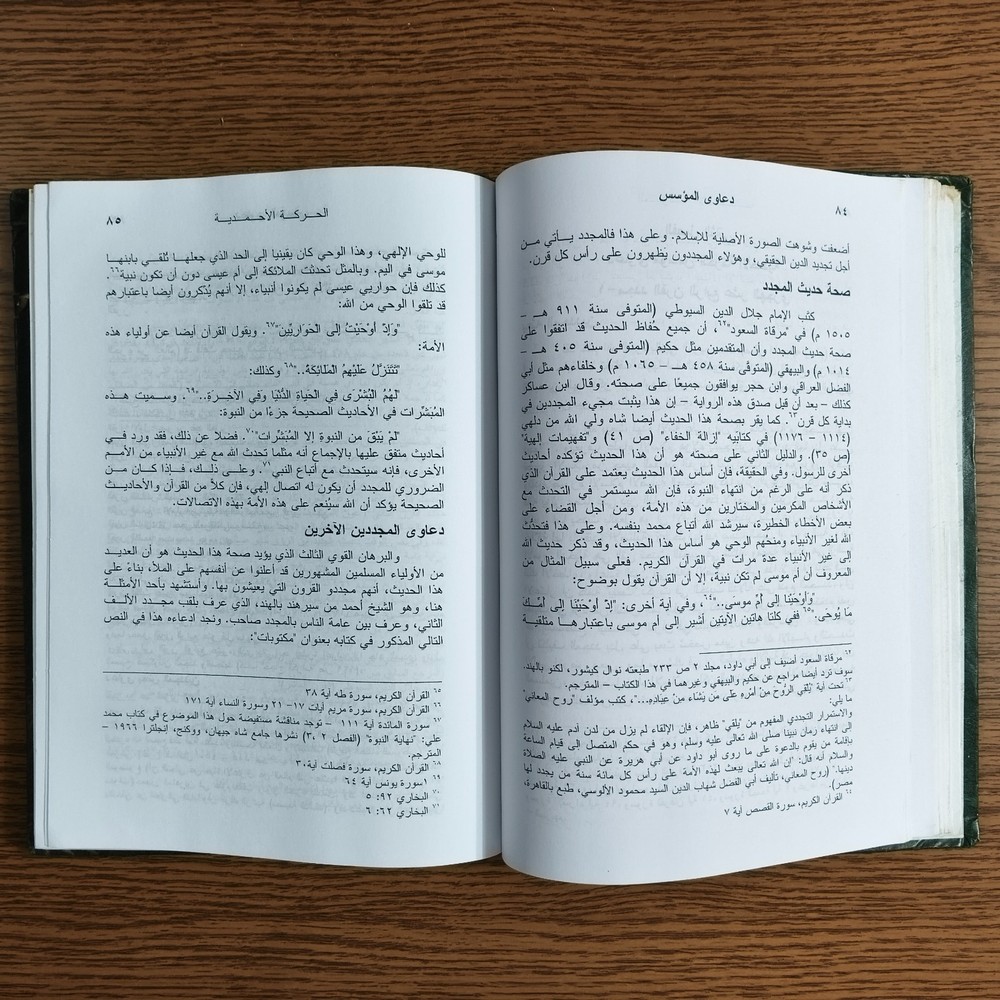 ٨٤
دعاوى المؤسس
أضعفت وشوهت الصورة الأصلية للإسلام. وعلى هذا فالمجدد يـــأتي مـن
أجل تجديد الدين الحقيقي، وهؤلاء المجددون يَظهرون على رأس كل قرن.
صحة حديث المجدد
كتب الإمام جلال الدين السيوطي (المتوفى سنة ٩١١ هـــ –
١٥٠٥ م) في "مرقاة السعود"٦٢، أن جميع حُفاظ الحديث قد اتفقوا على
صحة حديث المجدد وأن المتقدمين مثل حكيم (المتوفى سنة ٤٠٥ هـــ –
١٠١٤ م) والبيهقي (المتوفى سنة ٤٥٨ هـــ – ١٠٦٥ م) وخلفاءهم مثل أبي
الفضل العراقي وابن حجر يوافقون جميعًا على صحته. وقال ابن عساكر
كذلك – بعد أن قبل صدق هذه الرواية – إن هذا يثبت مجيء المجددين في
بداية كل قرن٦٣. كما يقر بصحة هذا الحديث أيضا شاه ولي الله من دلهي
(١١١٤ – ١١٧٦) في كتابيه "إزالة الخفاء" (ص ٤١) و"تفهيمات إلهية"
(ص ٣٥). والدليل الثاني على صحته هو أن هذا الحديث تؤكده أحاديث
أخرى للرسول. وفي الحقيقة، فإن أساس هذا الحديث يعتمد على القرآن الذي
ذكر أنه على الرغم من انتهاء النبوة، فإن الله سيستمر في التحدث مع
الأشخاص المكرمين والمختارين من هذه الأمة. ومن أجل القضاء على
بعض الأخطاء الخطيرة، سيرشد الله أتباع محمد بنفسه. وعلى هذا فتحدُّث
الله لغير الأنبياء ومنحُهم الوحي هو أساس هذا الحديث، وقد ذكر حديث الله
إلى غير الأنبياء عدة مرات في القرآن الكريم. فعلى سبيل المثال من
المعروف أن أم موسى لم تكن نبية، إلا أن القرآن يقول بوضوح:
"وَأَوْحَيْنَا إلى أمِّ موسى.."٦٤، وفي آية أخرى: "إذْ أوْحَيْنَا إلى أمِّـــكَ
مَا يُوحَى."٦٥ ففي كلتا هاتين الآيتين أشير إلى أم موسى باعتبارهـــا متلقيـــة
٦٢ مرقاة السعود أضيف إلى أبي داود، مجلد ٢ ص ٢٣٣ طبعته نوال كيشور، لكنو بالهند.
سوف تزد أيضا مراجع عن حكيم والبيهقي وغيرهما في هذا الكتاب – المترجم.
٦٣ تحت آية "يُلقِي الرُّوحَ مِنْ أمْرِهِ على مَن يَشَاءُ مِنْ عِبَادِهِ..."، كتب مؤلف "روح المعاني"
ما يلي:
والاستمرار التجددي المفهوم من "يلقي" ظاهر، فإن الإلقاء لم يزل من لدن آدم عليه السلام
إلى انتهاء زمان نبينا صلى الله تعالى عليه وسلم، وهو في حكم المتصل إلى قيام الساعة
بإقامة من يقوم بالدعوة على ما روى أبو داود عن أبي هريرة عن النبي عليه الصلاة
والسلام أنه قال: "إن الله تعالى يبعث لهذه الأمة على رأس كل مائة سنة من يجدد لها
دينها." (روح المعاني، تأليف أبي الفضل شهاب الدين السيد محمود الألوسي، طبع بالقاهرة،
مصر).
٦٤ القرآن الكريم، سورة القصص آية ٧
الحـــركـــة الأحـــمـــديـــة
٨٥
للوحي الإلهي، وهذا الوحي كان يقينيا إلى الحد الذي جعلهـــا تُلقـــي بابنهـــا
موسى في اليم. وبالمثل تحدثت الملائكة إلى أم عيسى دون أن تكون نبية٦٦.
كذلك فإن حواريي عيسى لم يكونوا أنبياء، إلا أنهم يُذكرون أيضا باعتبارهم
قد تلقوا الوحي من الله:
"وَإذ أوْحَيْتُ إلى الحَوَارِيِّين"٦٧. ويقول القرآن أيضا عن أولياء هذه
الأمة:
"تَتَنَزَّلُ عَلَيْهِمُ المَلائِكَةُ.."٦٨ وكذلك:
"لَهُمُ البُشْرَى في الحَيَاةِ الدُّنْيَا وفي الآخِرَةِ.."٦٩. وسميت هـــذه
المُبَشِّرَات في الأحاديث الصحيحة جزءًا من النبوة:
"لمْ يَبْقَ من النبوة إلا المُبَشِّرَات"٧٠. فضلا عن ذلك، فقد ورد فـــي
أحاديث متفق عليها بالإجماع أنه مثلما تحدث الله مع غير الأنبياء من الأمم
الأخرى، فإنه سيتحدث مع أتباع النبي٧١. وعلى ذلـــك، فـــإذا كـــان مـــن
الضروري للمجدد أن يكون له اتصال إلهي، فإن كلاً من القرآن والأحاديـــث
الصحيحة يؤكد أن الله سيُنعم على هذه الأمة بهذه الاتصالات.
دعاوى المجددين الآخرين
والبرهان القوي الثالث الذي يؤيد صحة هذا الحديث هو أن العديـــد
من الأولياء المسلمين المشهورين قد أعلنوا عن أنفسهم على الملأ، بناءً على
هذا الحديث، أنهم مجددو القرون التي يعيشون بها. وأستشهد بأحد الأمثلـــة
هنا، وهو الشيخ أحمد من سيرهند بالهند، الذي عرف بلقب مجـــدد الألـــف
الثاني، وعرف بين عامة الناس بالمجدد صاحب. ونجد ادعاءه هذا في النص
التالي المذكور في كتابه بعنوان "مكتوبات":
٦٥ القرآن الكريم، سورة طه آية ٣٨
٦٦ القرآن الكريم، سورة مريم آيات ١٧– ٢١ وسورة النساء آية ١٧١
٦٧ سورة المائدة آية ١١١ – توجد مناقشة مستفيضة حول هذا الموضوع في كتاب محمد
علي: "نهاية النبوة" (الفصل ٢ ،٣) نشرها جامع شاه جيهان، ووكنج، إنجلترا ١٩٦٦ –
المترجم.
٦٨ القرآن الكريم، سورة فصلت آية٣٠
٦٩ ١سورة يونس آية ٦٤
٧٠ البخاري ٩٢: ٥
٧١ البخاري ٦٢: ٦